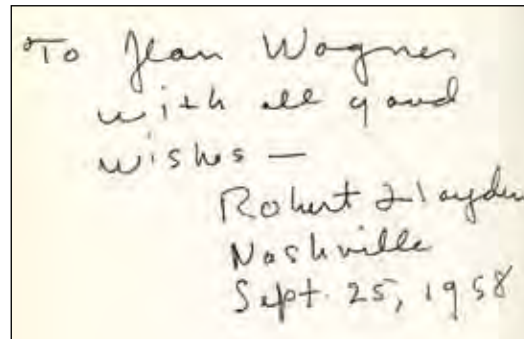 To Jean Wagner
with all good
wishes —
Robert Hayden
Nashville
Sept. 25, 1958